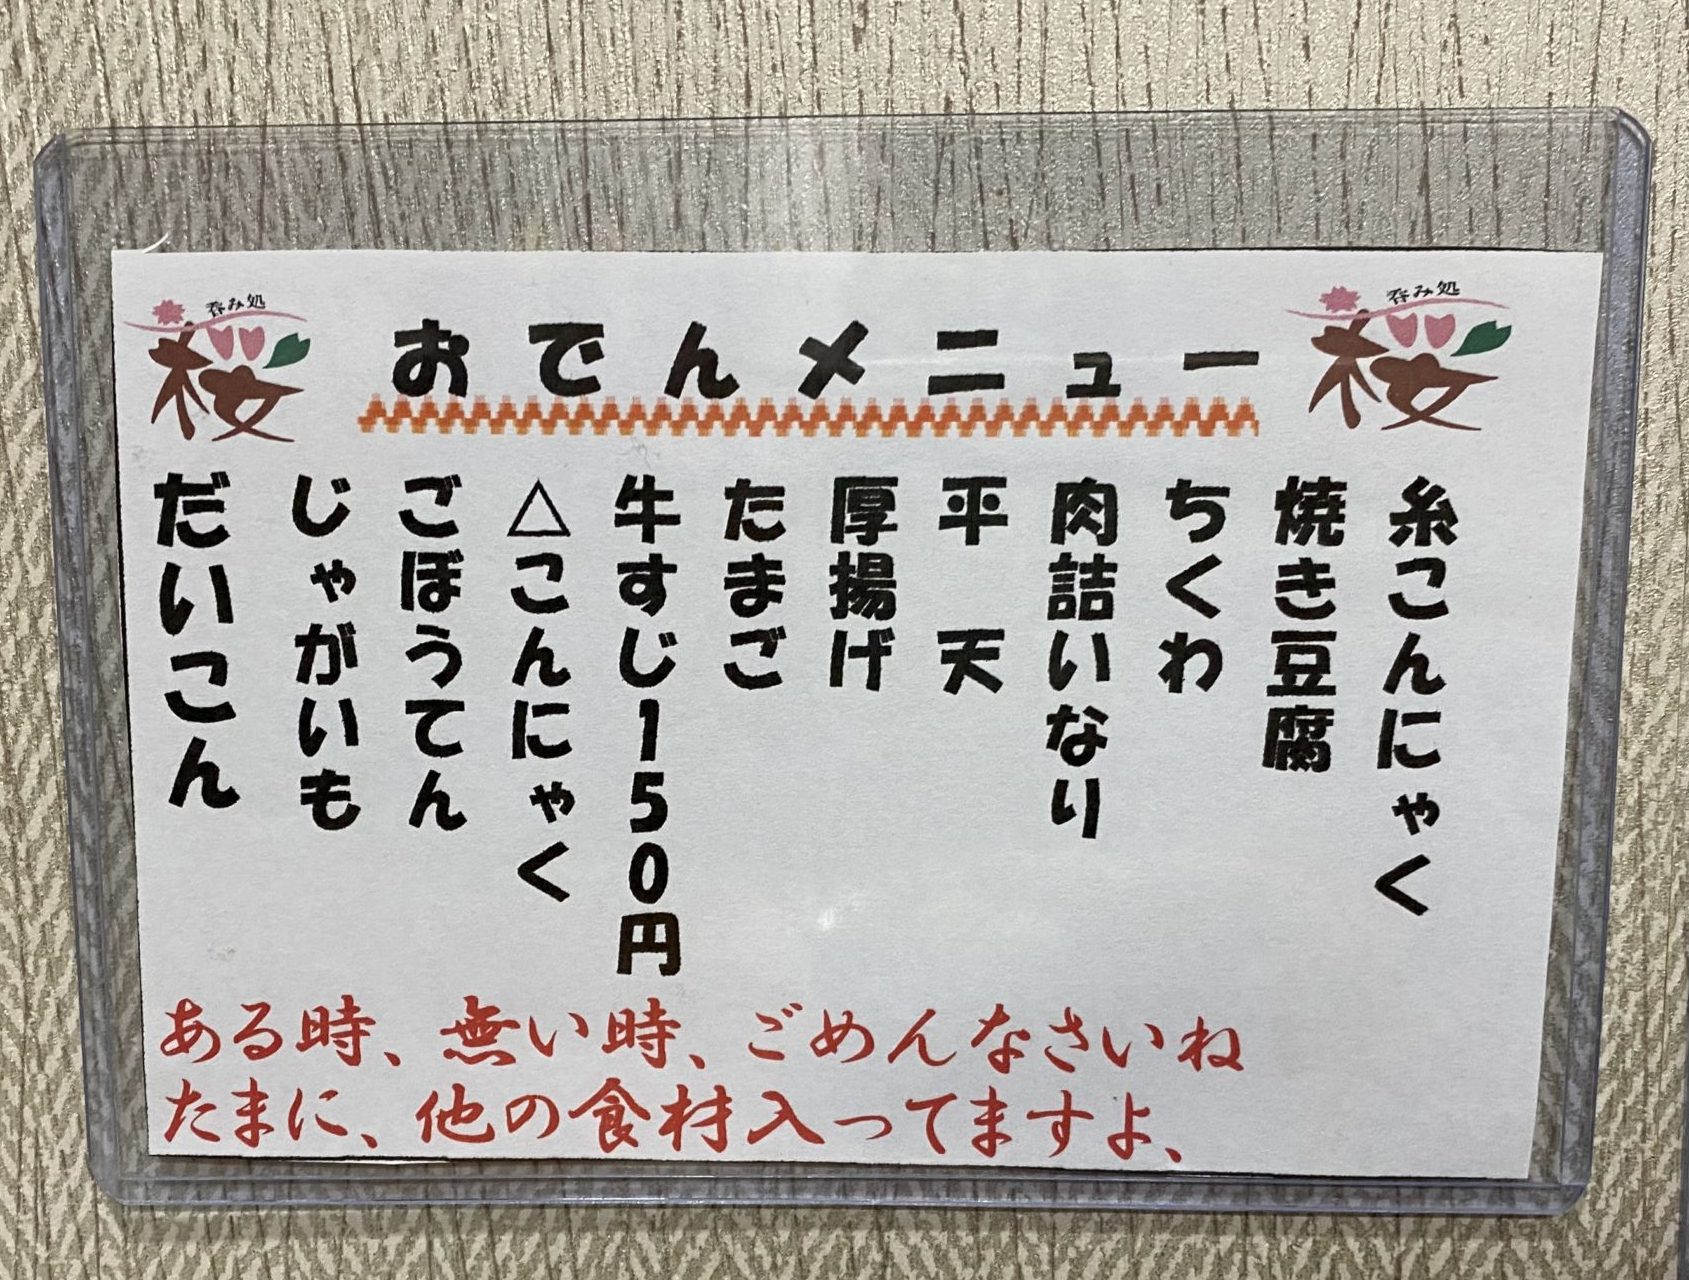 呑み処
桜
おでんメニュー
呑み処
桜
糸こんにゃく
焼き豆腐
ちくわ
肉詰いなり
平　天
厚揚げ
たまご
牛すじ150円
△こんにゃく
ごぼうてん
じゃがいも
だいこん
ある時、無い時、ごめんなさいね
たまに、他の食材入ってますよ、